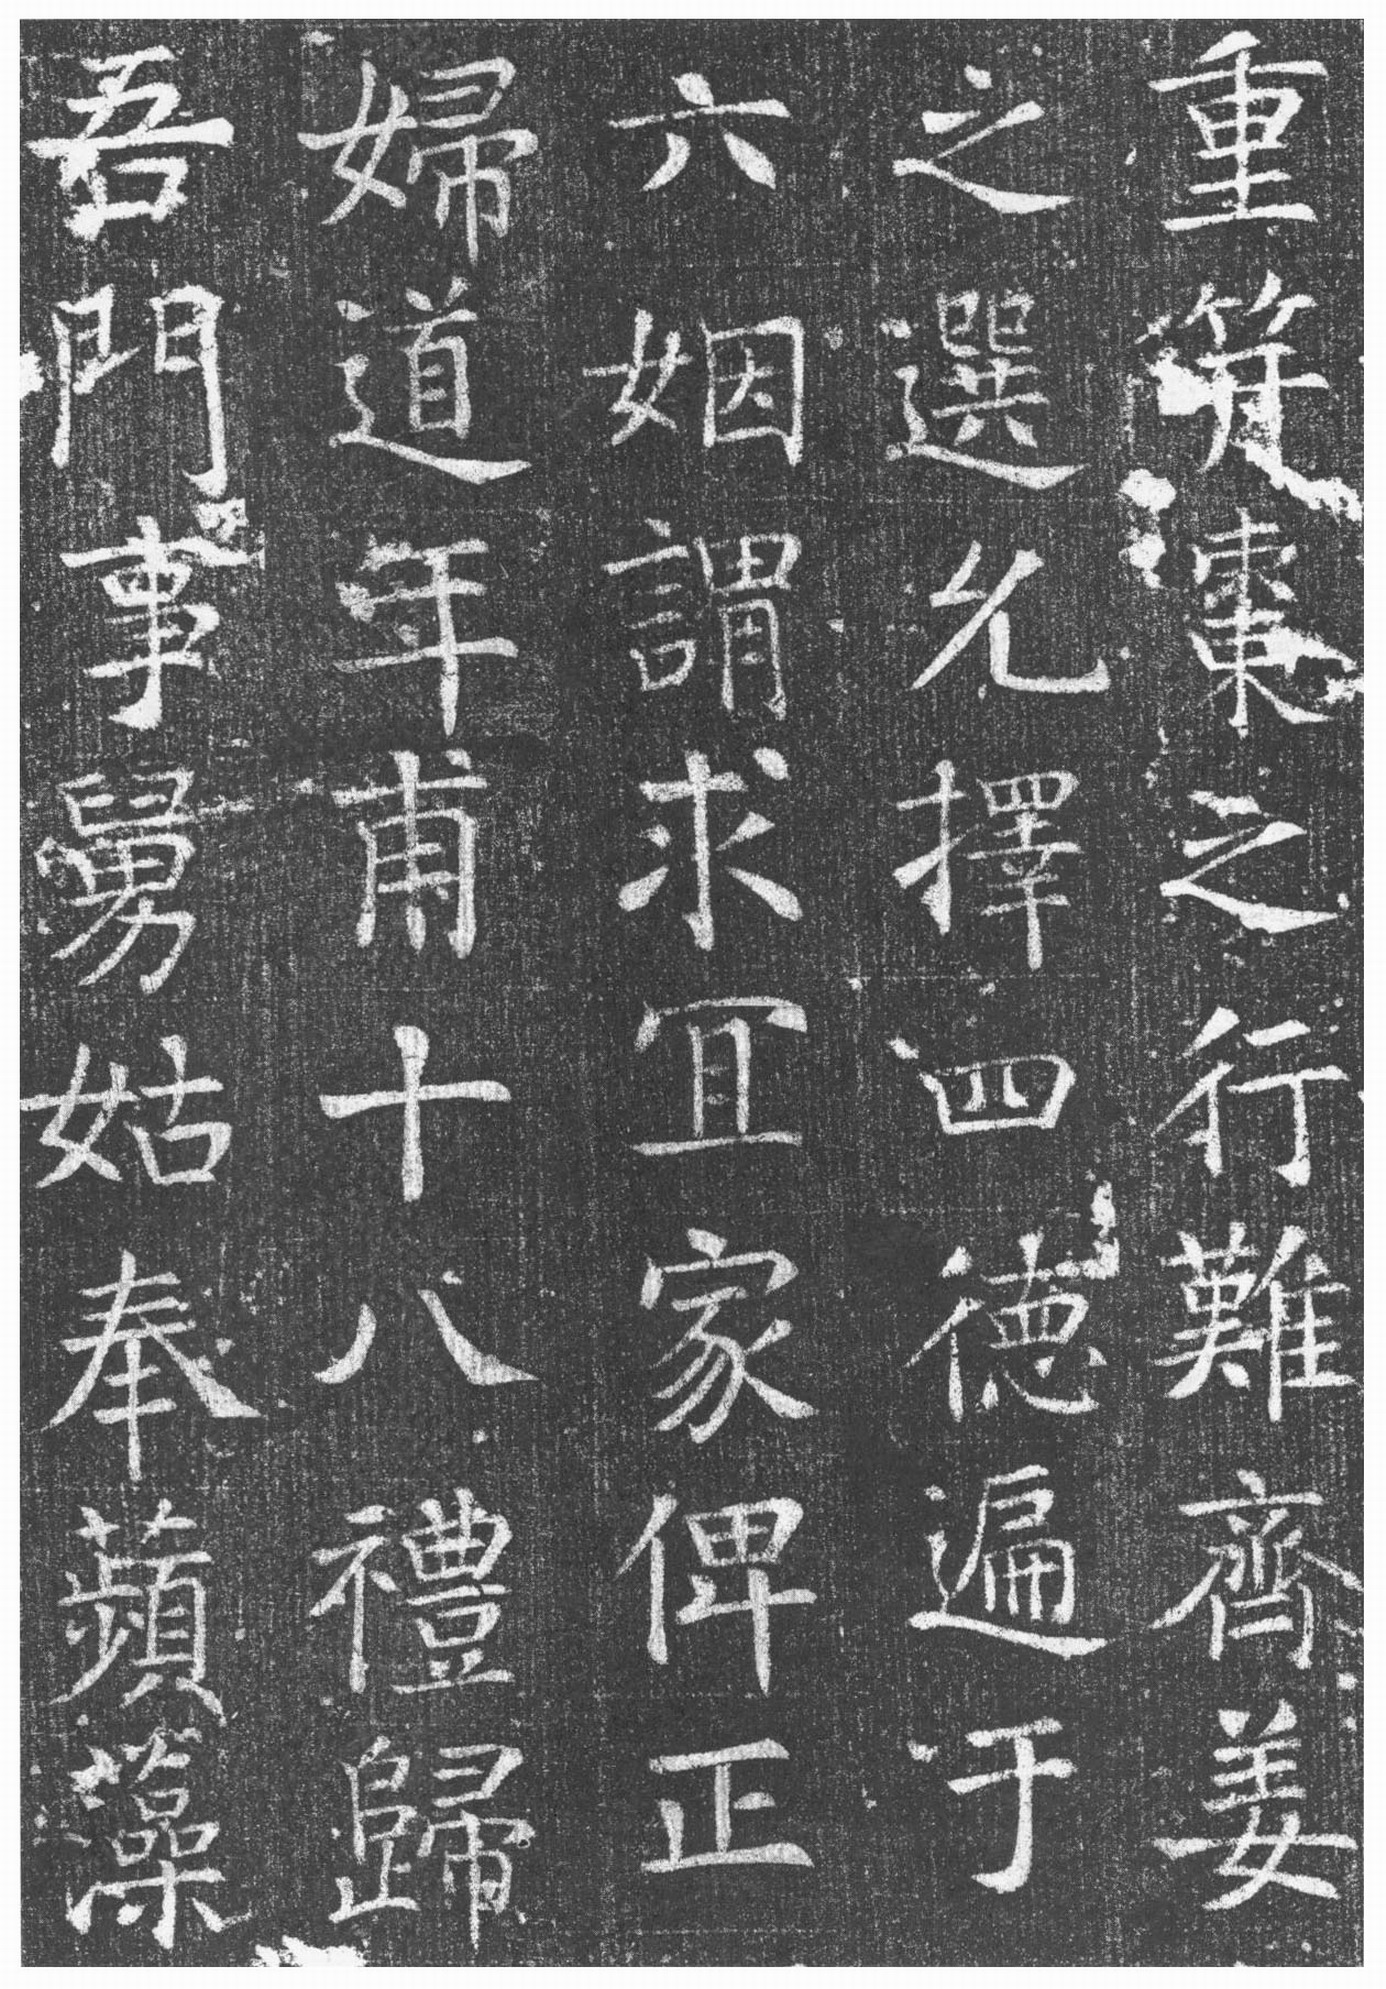 重筓棗之行難齊姜
之選允擇四德遍于
六姻謂求冝家俾正
婦道年甫十八禮歸
吾門事舅姑奉蘋藻